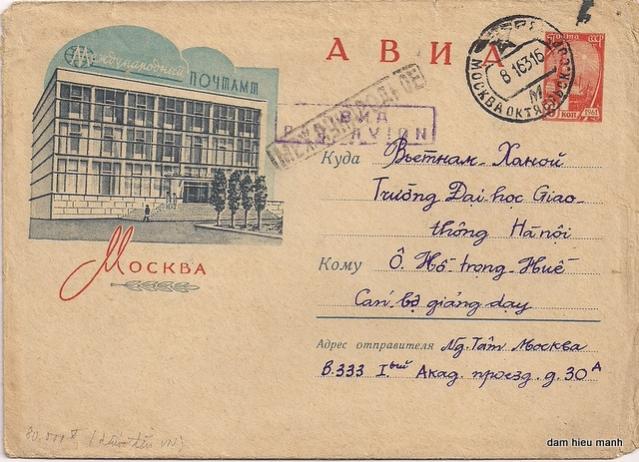 Международный
ПОЧТАМТ
АВИА
МОСКВА
ПОЧТА СССР
6 КОП
1961
8 1 63 16
МОСКВА ОКТЯБРЬСК
МЕЖДУНАРОДНОЕ
АВИА
PAR AVION
Куда Вьетнам - Ханой
Trường Đại học Giao-
thông Hà nội
Кому Ô. Hồ trọng Huế
Cán bộ giảng dạy
Адрес отправителя Ng. Tâm Москва
В.333 Iый Акад. проезд. д. 30А
dam hieu manh